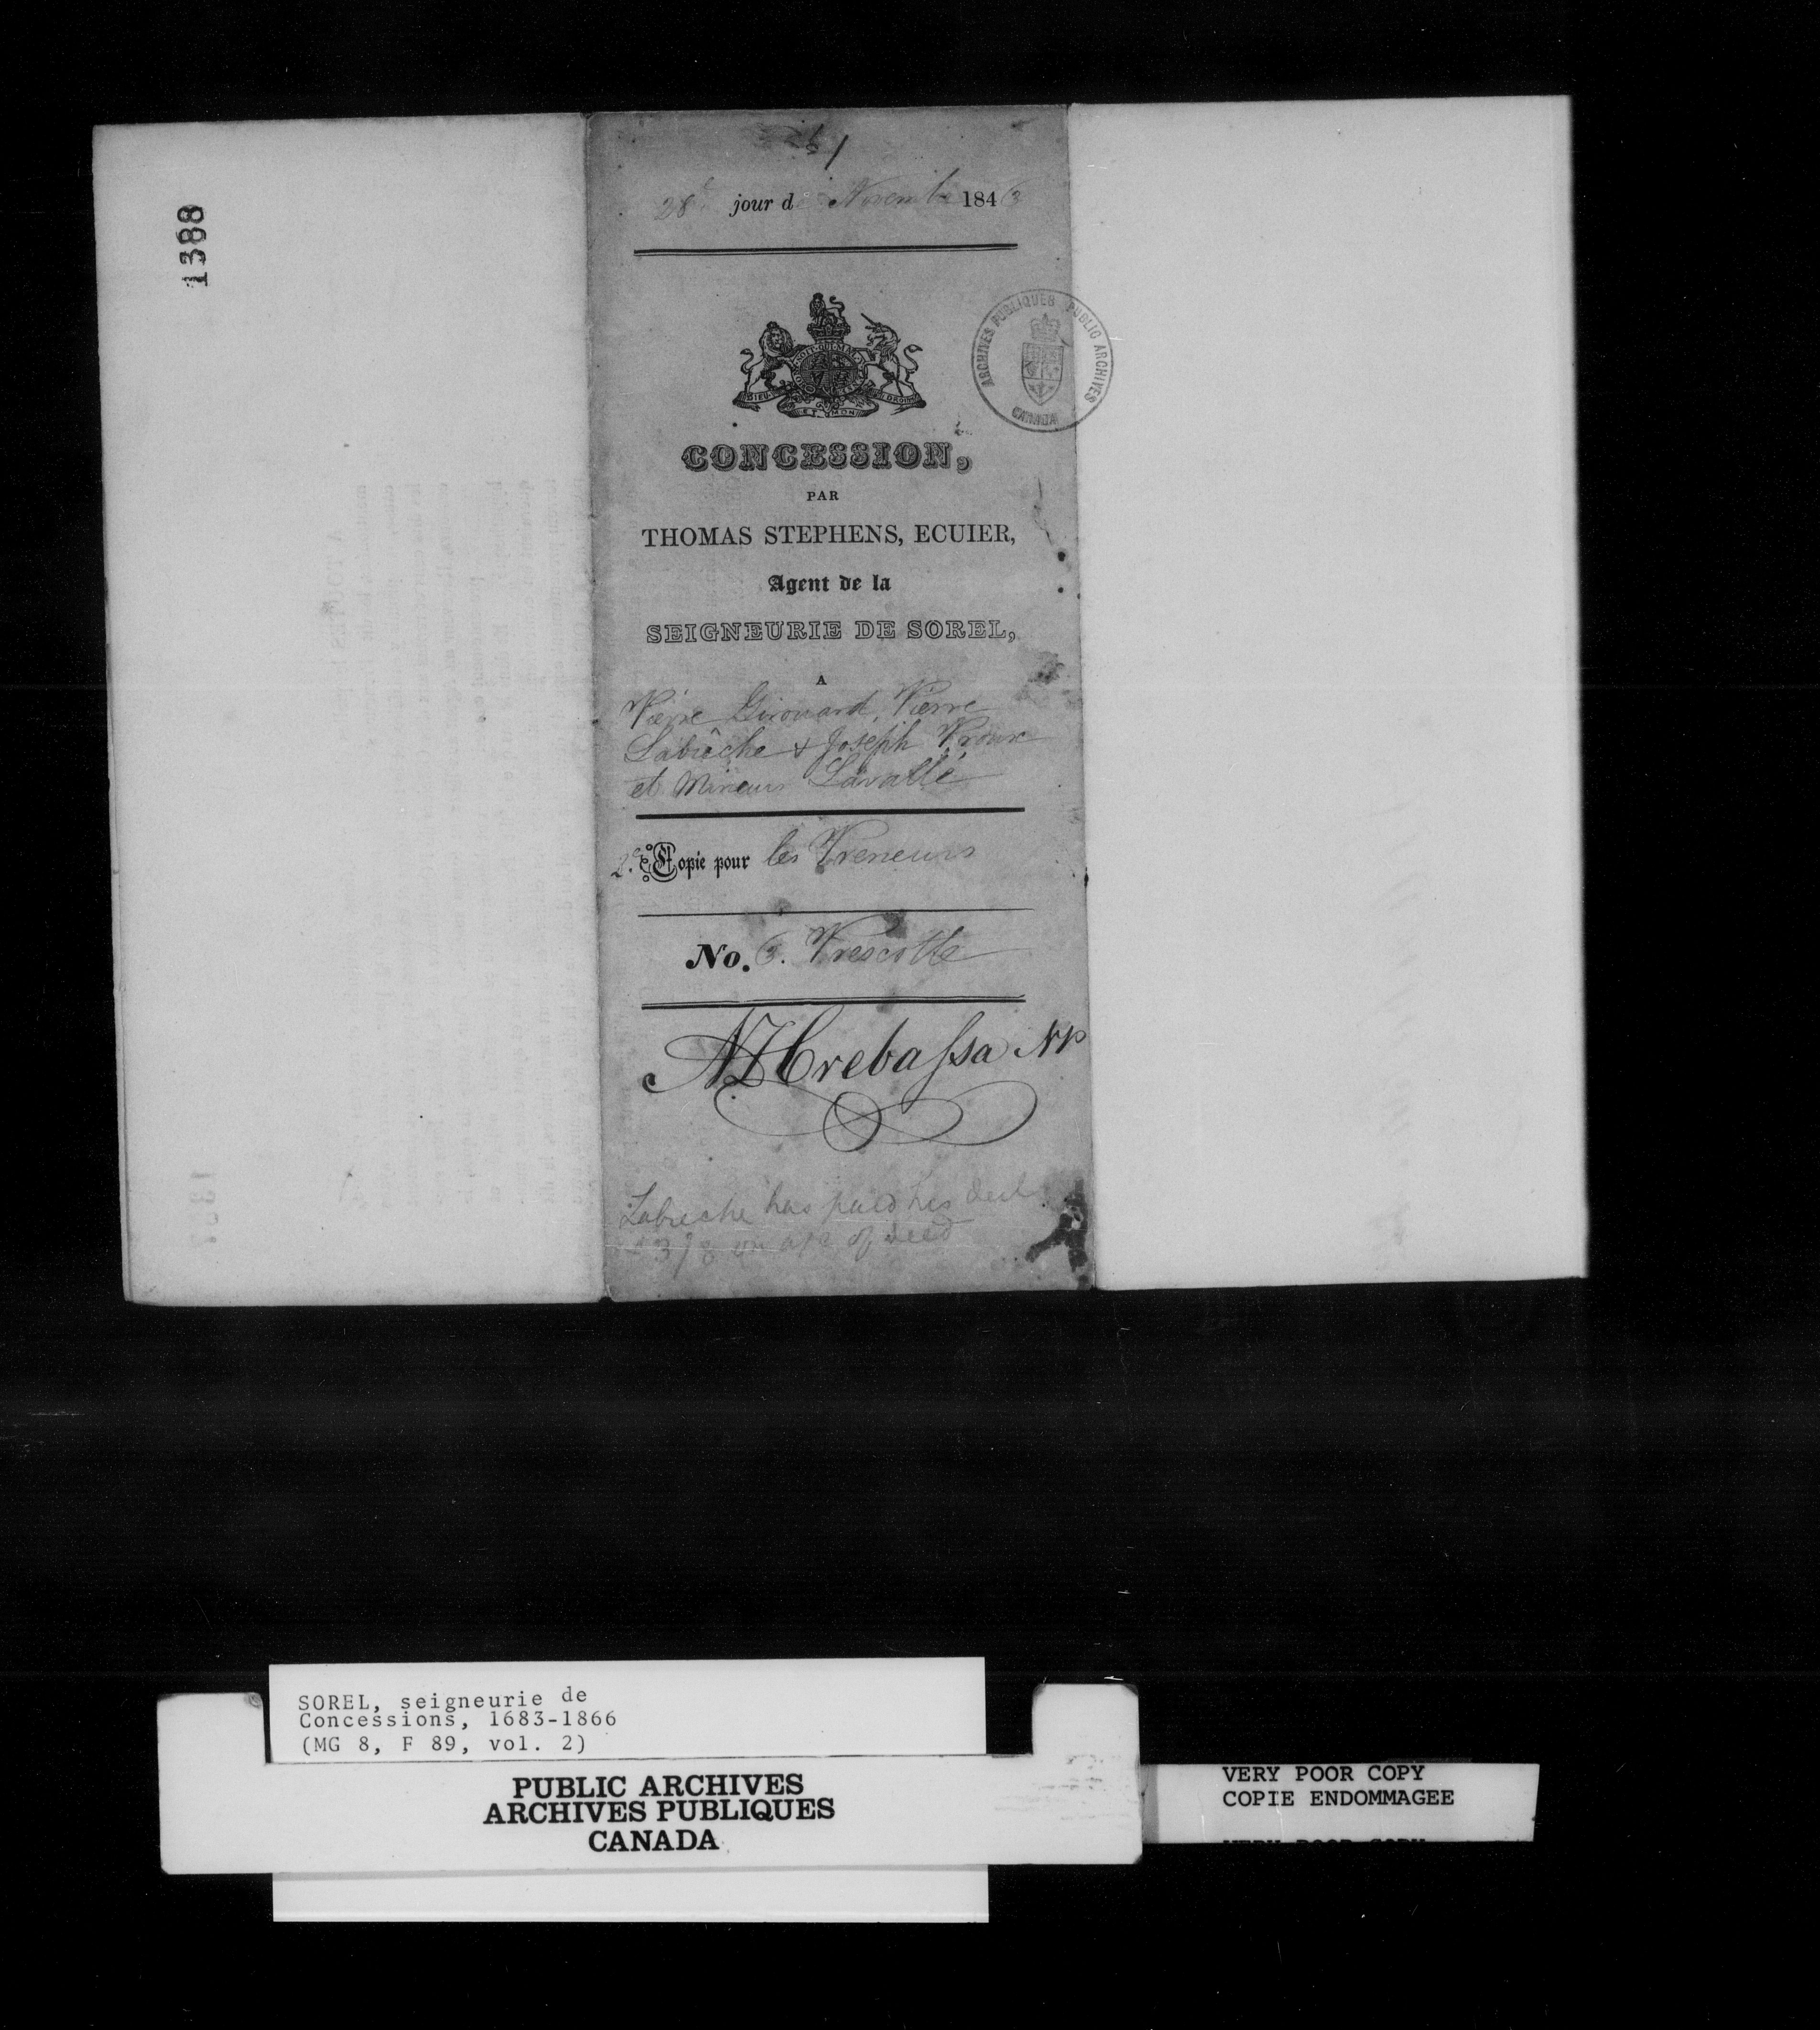 1388
28e jour de Novembre 1843
ARCHIVES PUBLIQUES PUBLIC ARCHIVES
CANADA
DIEU ET MON DROIT
CONCESSION,
PAR
THOMAS STEPHENS, ECUIER,
Agent de la
SEIGNEURIE DE SOREL,
A
Pierre Girouard, Pierre
Labrêche & Joseph Proux
et Mineurs Lavallé
2e. Copie pour les Preneurs
No. 3. Prescotte
Crebassa NP
Labreche has paid his
3/8 on a/c of deed
SOREL, seigneurie de
Concessions, 1683-1866
(MG 8, F 89, vol. 2)
PUBLIC ARCHIVES
ARCHIVES PUBLIQUES
CANADA
VERY POOR COPY
COPIE ENDOMMAGEE
VERY POOR COPY